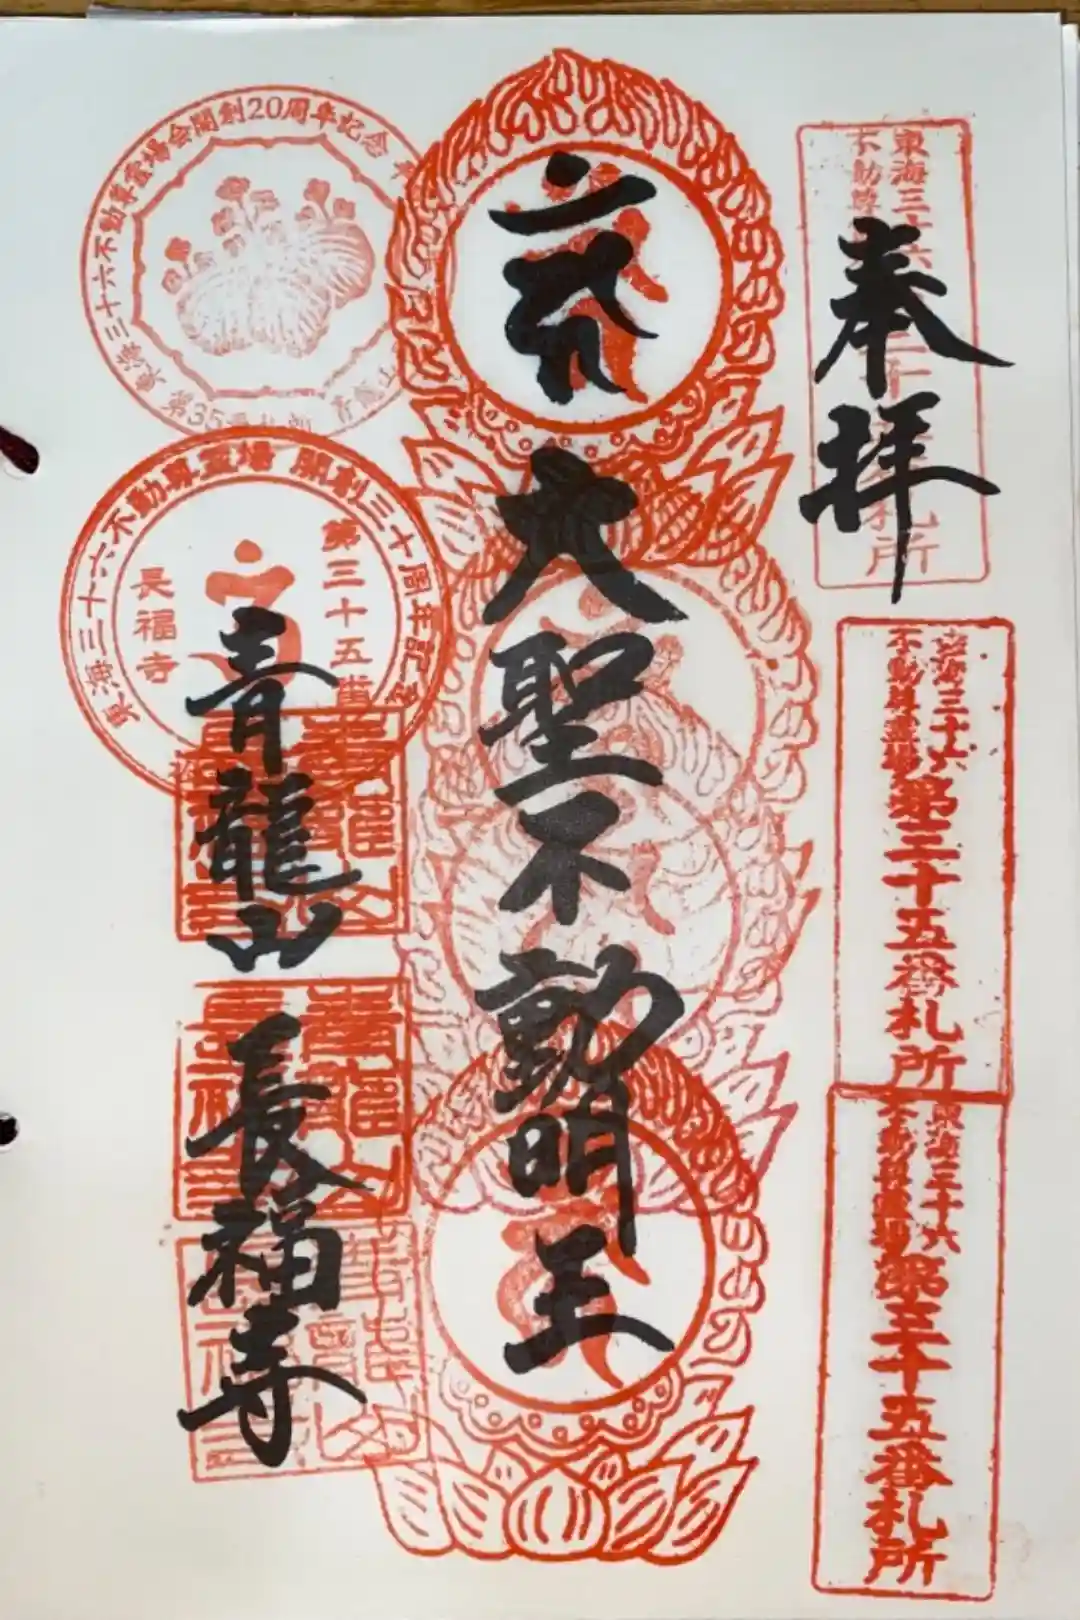 奉拝
大聖不動明王
青龍山
長福寺
東海三十六
不動尊
札所
東海三十六
不動尊霊場
第三十五番札所
東海三十六
不動尊霊場
第三十五番札所
東海三十六不動尊霊場会開創20周年記念
第35番札所
東海三十六不動尊霊場 開創三十周年記念
第三十五番
長福寺